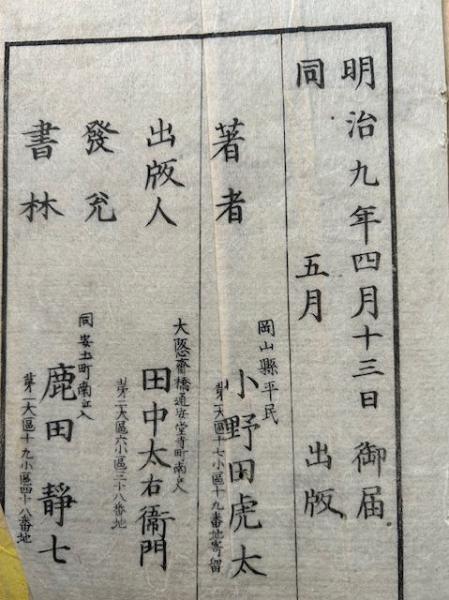 明治九年四月十三日 御届
同 五月 出版
著者 岡山縣平民 小野田虎太
第一大區十七小區十九番地寄留
出版人 大阪心齋橋通安堂寺町南入 田中太右衞門
第二大區六小區三十八番地
發兌
書林 同安土町南入 鹿田靜七
第一大區十九小區四十八番地